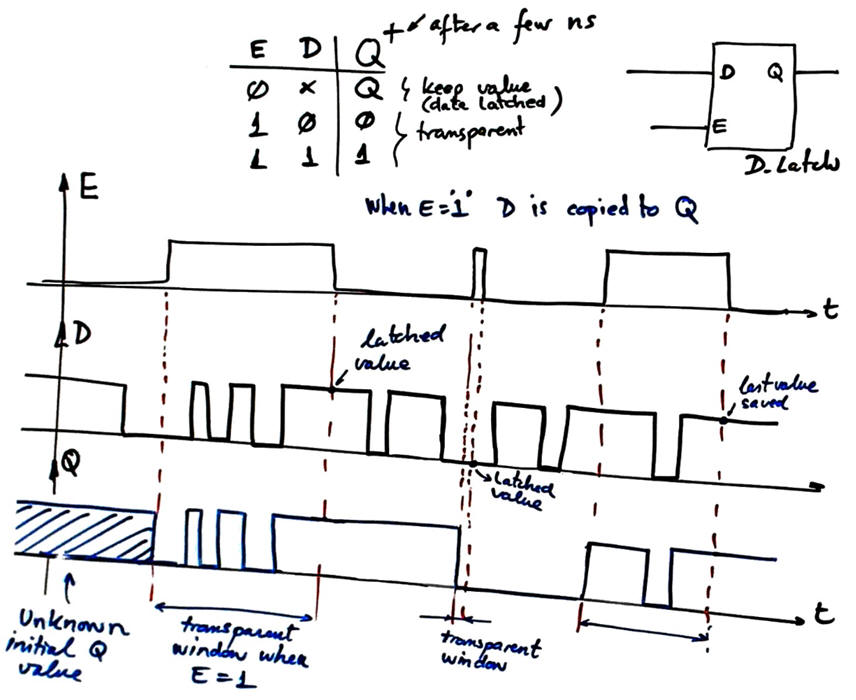 E D Q+ ↙ after a few ns
Ø x Q } keep value
(date latched)
1 Ø Ø } transparent
1 1 1
D Q
E
D-Latch
When E='1' D is copied to Q
E
t
D
latched
value
last value
saved
Q
latched
value
t
Unknown
initial Q
value
transparent
window when
E=1
transparent
window